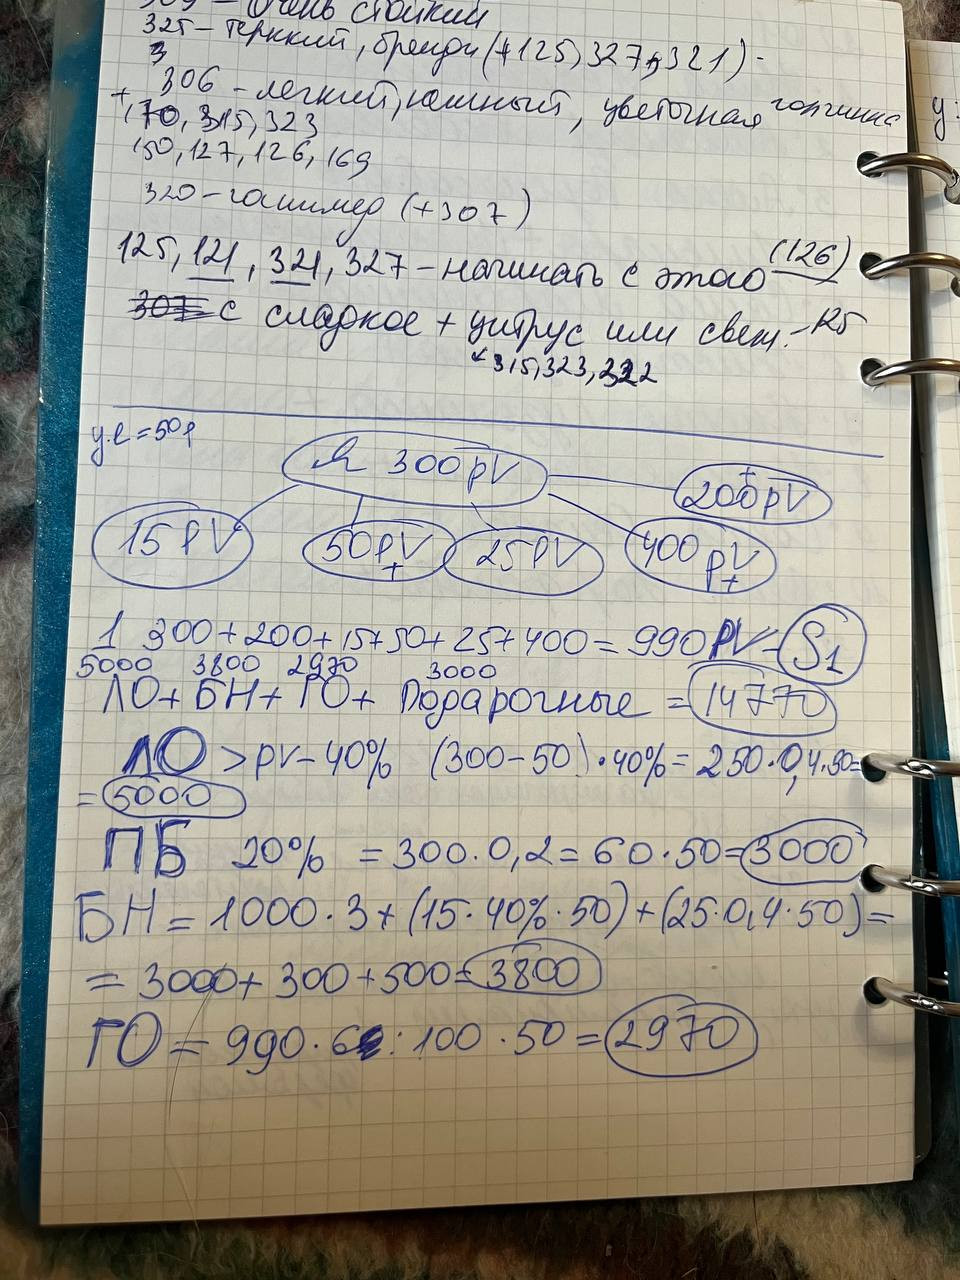 309 - Очень стойкий
325 - терпкий, бренди (+125, 327, 321) -
306 - легкий, южный, цветочная
+170, 315, 323
150, 127, 126, 169
320 - гашимер (+307)
125, 121, 321, 327 - начинать с этого (126)
307 с сладкое + цитрус или свеж. - 125
315, 323, 322
у.е = 50р
Я 300 pV
200 pV +
15 PV
50 pV +
25 PV
400 pV +
1 300 + 200 + 15 + 50 + 25 + 400 = 990 PV - S1
5000 3800 2970 3000
ЛО + БН + ГО + Подарочные = 14770
ЛО > pv - 40% (300 - 50) · 40% = 250 · 0,4 · 50 =
= 5000
ПБ 20% = 300 · 0,2 = 60 · 50 = 3000
БН = 1000 · 3 + (15 · 40% · 50) + (25 · 0,4 · 50) =
= 3000 + 300 + 500 = 3800
ГО = 990 · 6 : 100 · 50 = 2970